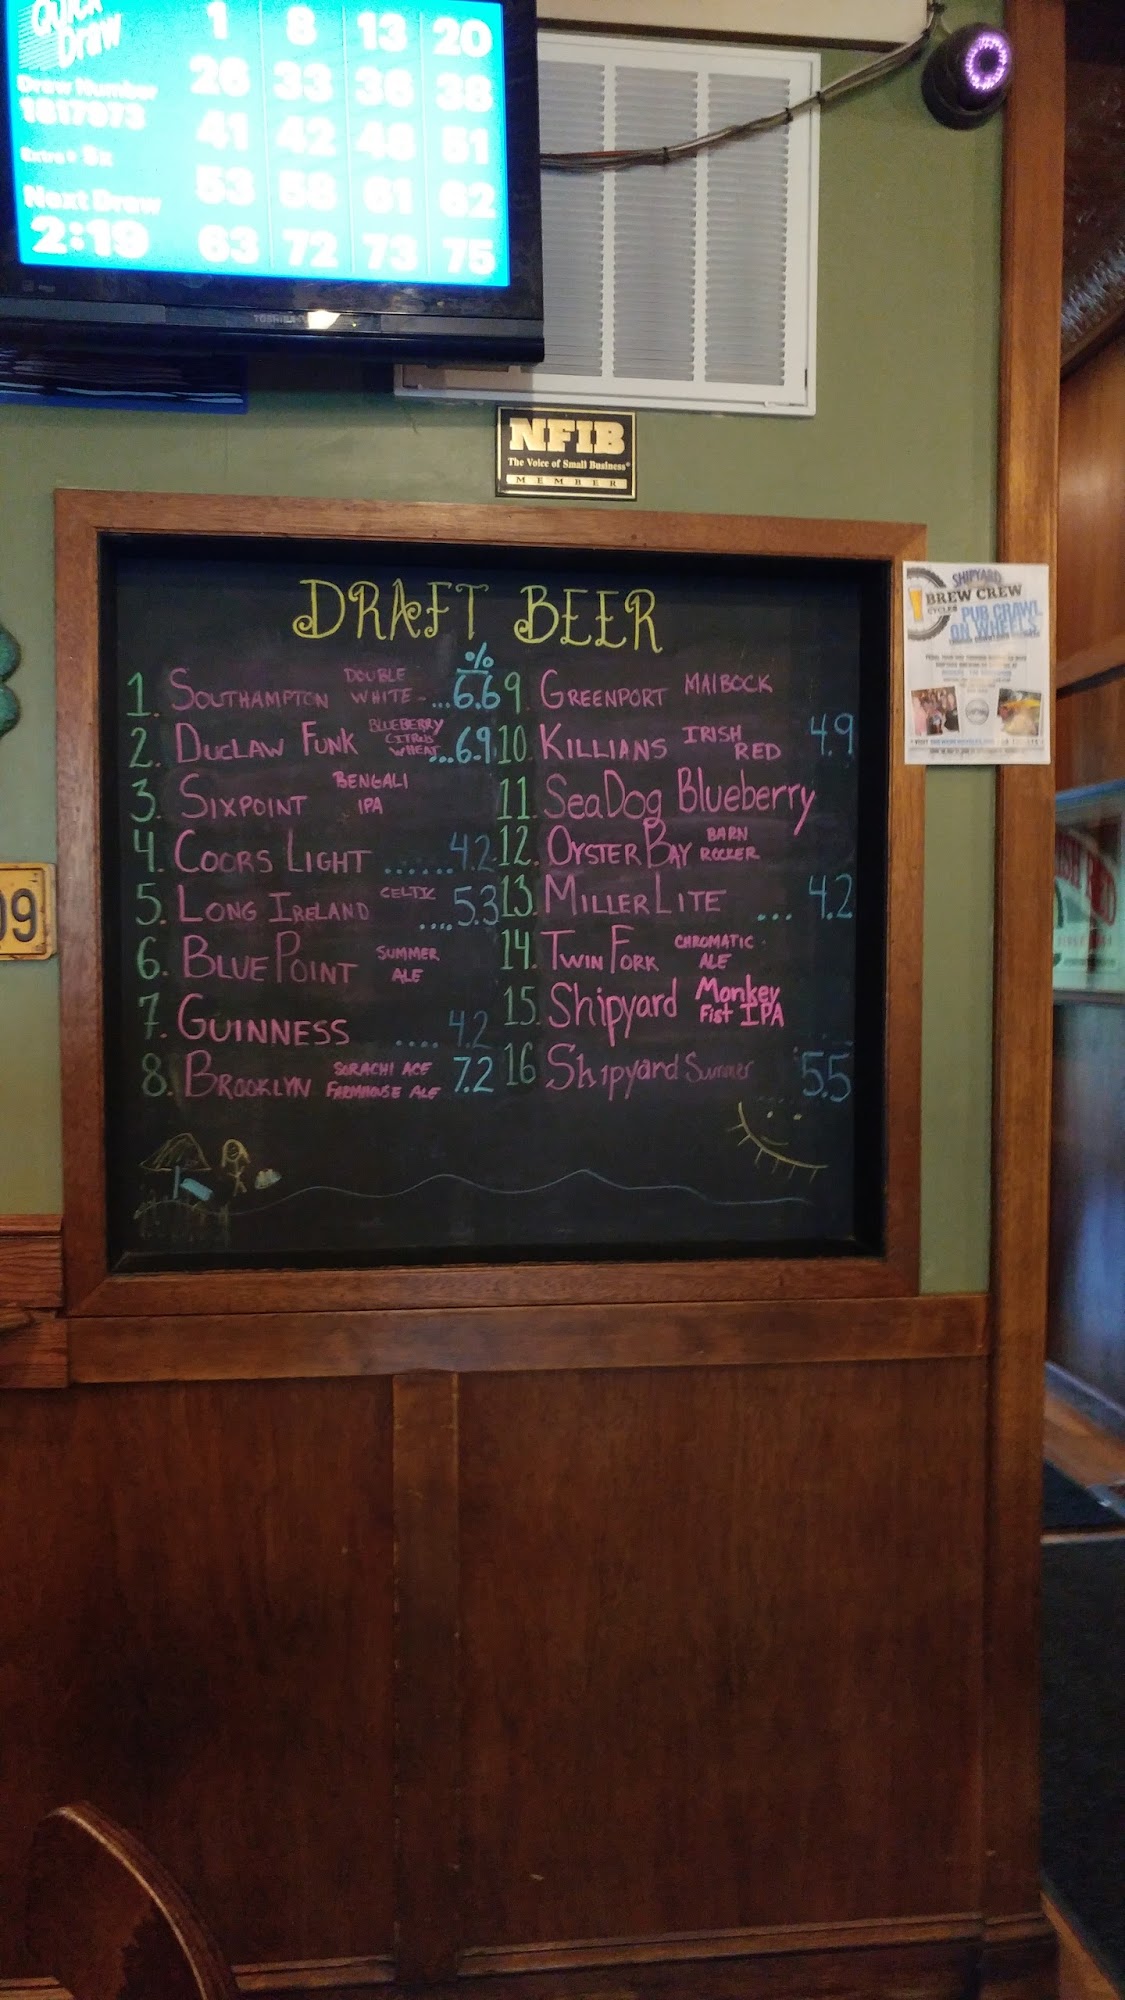 Quick
Draw
Draw Number
1817973
Extra • 5x
Next Draw
2:19
1 8 13 20
26 33 36 38
41 42 48 51
53 58 61 62
63 72 73 75
TOSHIBA
NFIB
The Voice of Small Business®
MEMBER
DRAFT BEER
%
1. SOUTHAMPTON DOUBLE WHITE ... 6.6
2. DUCLAW FUNK BLUEBERRY CITRUS WHEAT ... 6.9
3. SIXPOINT BENGALI IPA
4. COORS LIGHT ...... 4.2
5. LONG IRELAND CELTIC .... 5.3
6. BLUE POINT SUMMER ALE
7. GUINNESS .... 4.2
8. BROOKLYN SORACHI ACE FARMHOUSE ALE 7.2
9. GREENPORT MAIBOCK
10. KILLIANS IRISH RED 4.9
11. SeaDog Blueberry
12. OYSTER BAY BARN ROCKER
13. MILLER LITE ... 4.2
14. TWIN FORK CHROMATIC ALE
15. Shipyard Monkey Fist IPA
16 Shipyard Summer 5.5
SHIPYARD
BREW CREW
CYCLES PUB CRAWL
ON WHEELS
09